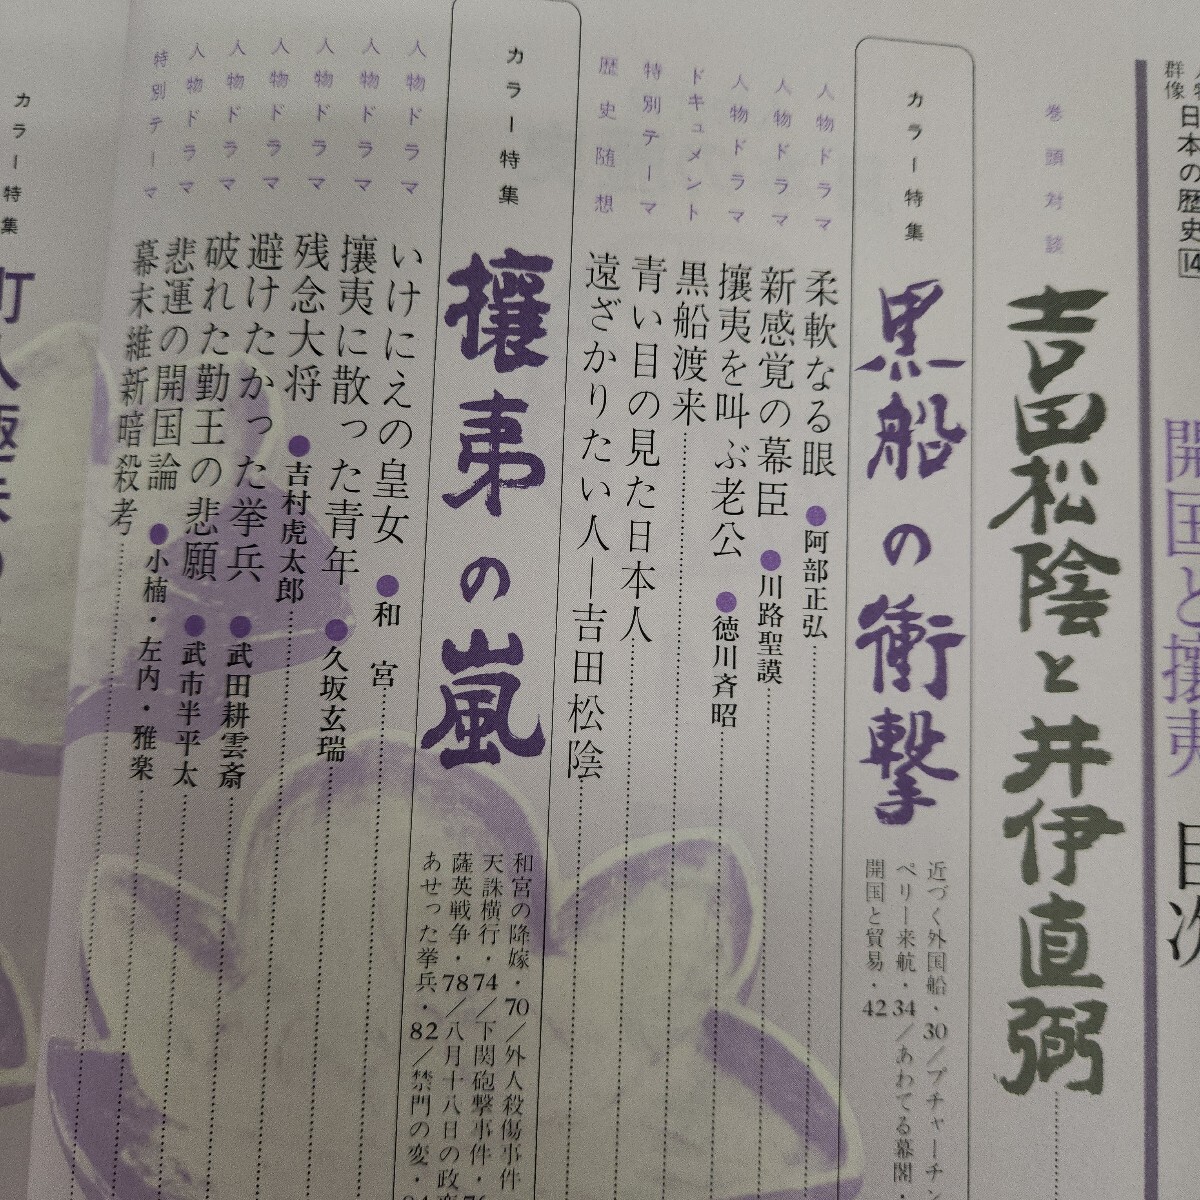 群像
日本の歴史 14
開国と攘夷 目次
巻頭対談
吉田松陰と井伊直弼
カラー特集
黒船の衝撃
近づく外国船・30／プチャーチン
ペリー来航・34／あわてる幕閣・
開国と貿易・42
人物ドラマ 柔軟なる眼 ●阿部正弘
人物ドラマ 新感覚の幕臣 ●川路聖謨
人物ドラマ 攘夷を叫ぶ老公 ●徳川斉昭
ドキュメント 黒船渡来
特別テーマ 青い目の見た日本人
歴史随想 遠ざかりたい人―吉田松陰
カラー特集
攘夷の嵐
和宮の降嫁・70／外人殺傷事件
天誅横行・74／下関砲撃事件・76
薩英戦争・78／八月十八日の政変
あせった挙兵・82／禁門の変・
人物ドラマ いけにえの皇女 ●和 宮
人物ドラマ 攘夷に散った青年 ●久坂玄瑞
人物ドラマ 残念大将 ●吉村虎太郎
人物ドラマ 避けたかった挙兵 ●武田耕雲斎
人物ドラマ 破れた勤王の悲願 ●武市半平太
人物ドラマ 悲運の開国論 ●小楠・左内・雅楽
特別テーマ 幕末維新暗殺考
カラー特集